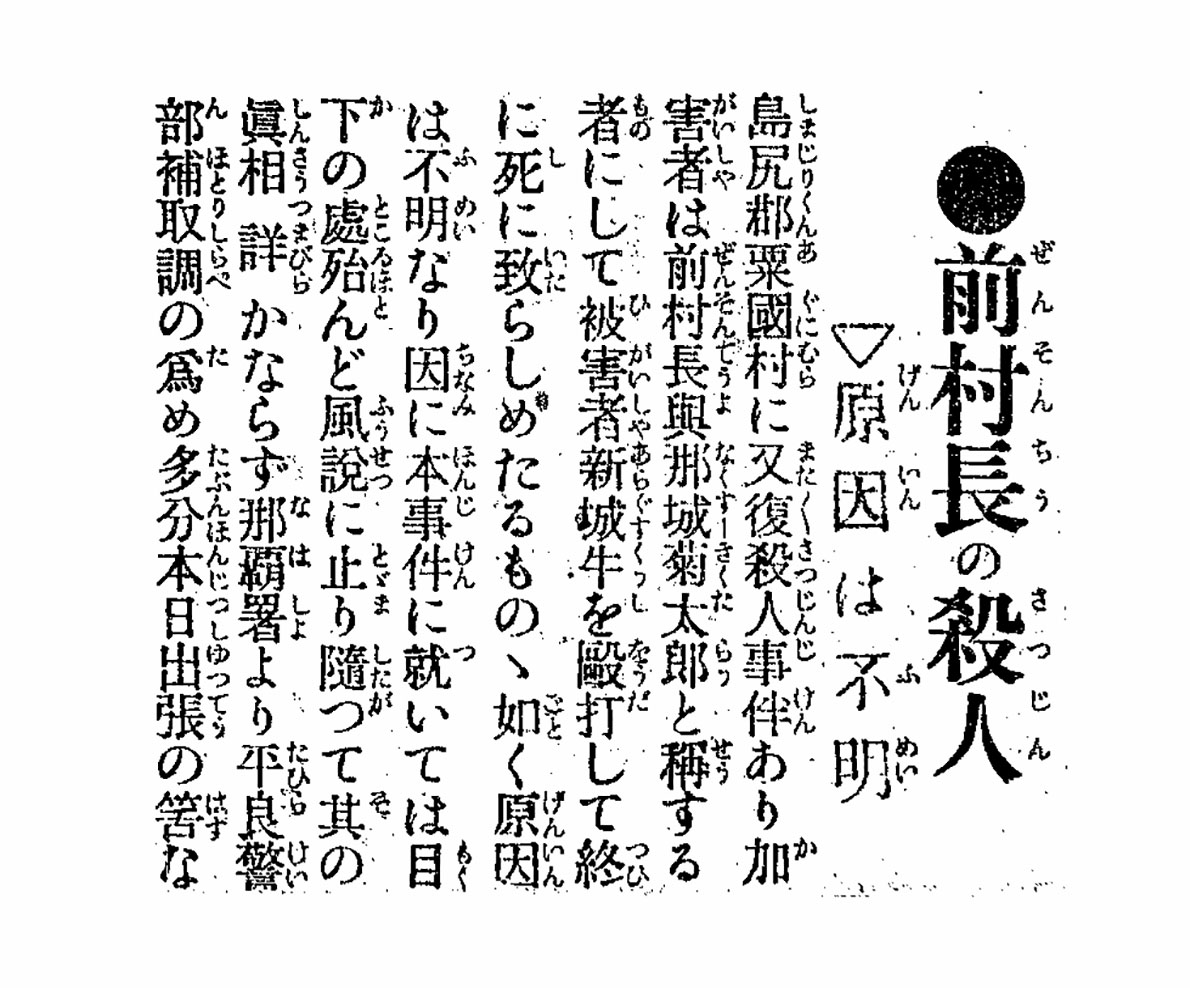 ●前村長の殺人
▽原因は不明
島尻郡粟國村に又復殺人事件あり加
害者は前村長與那城菊太郎と稱する
者にして被害者新城牛を毆打して終
に死に致らしめたるものゝ如く原因
は不明なり因に本事件に就いては目
下の處殆んど風說に止り隨つて其の
眞相詳かならず那覇署より平良警
部補取調の爲め多分本日出張の筈な